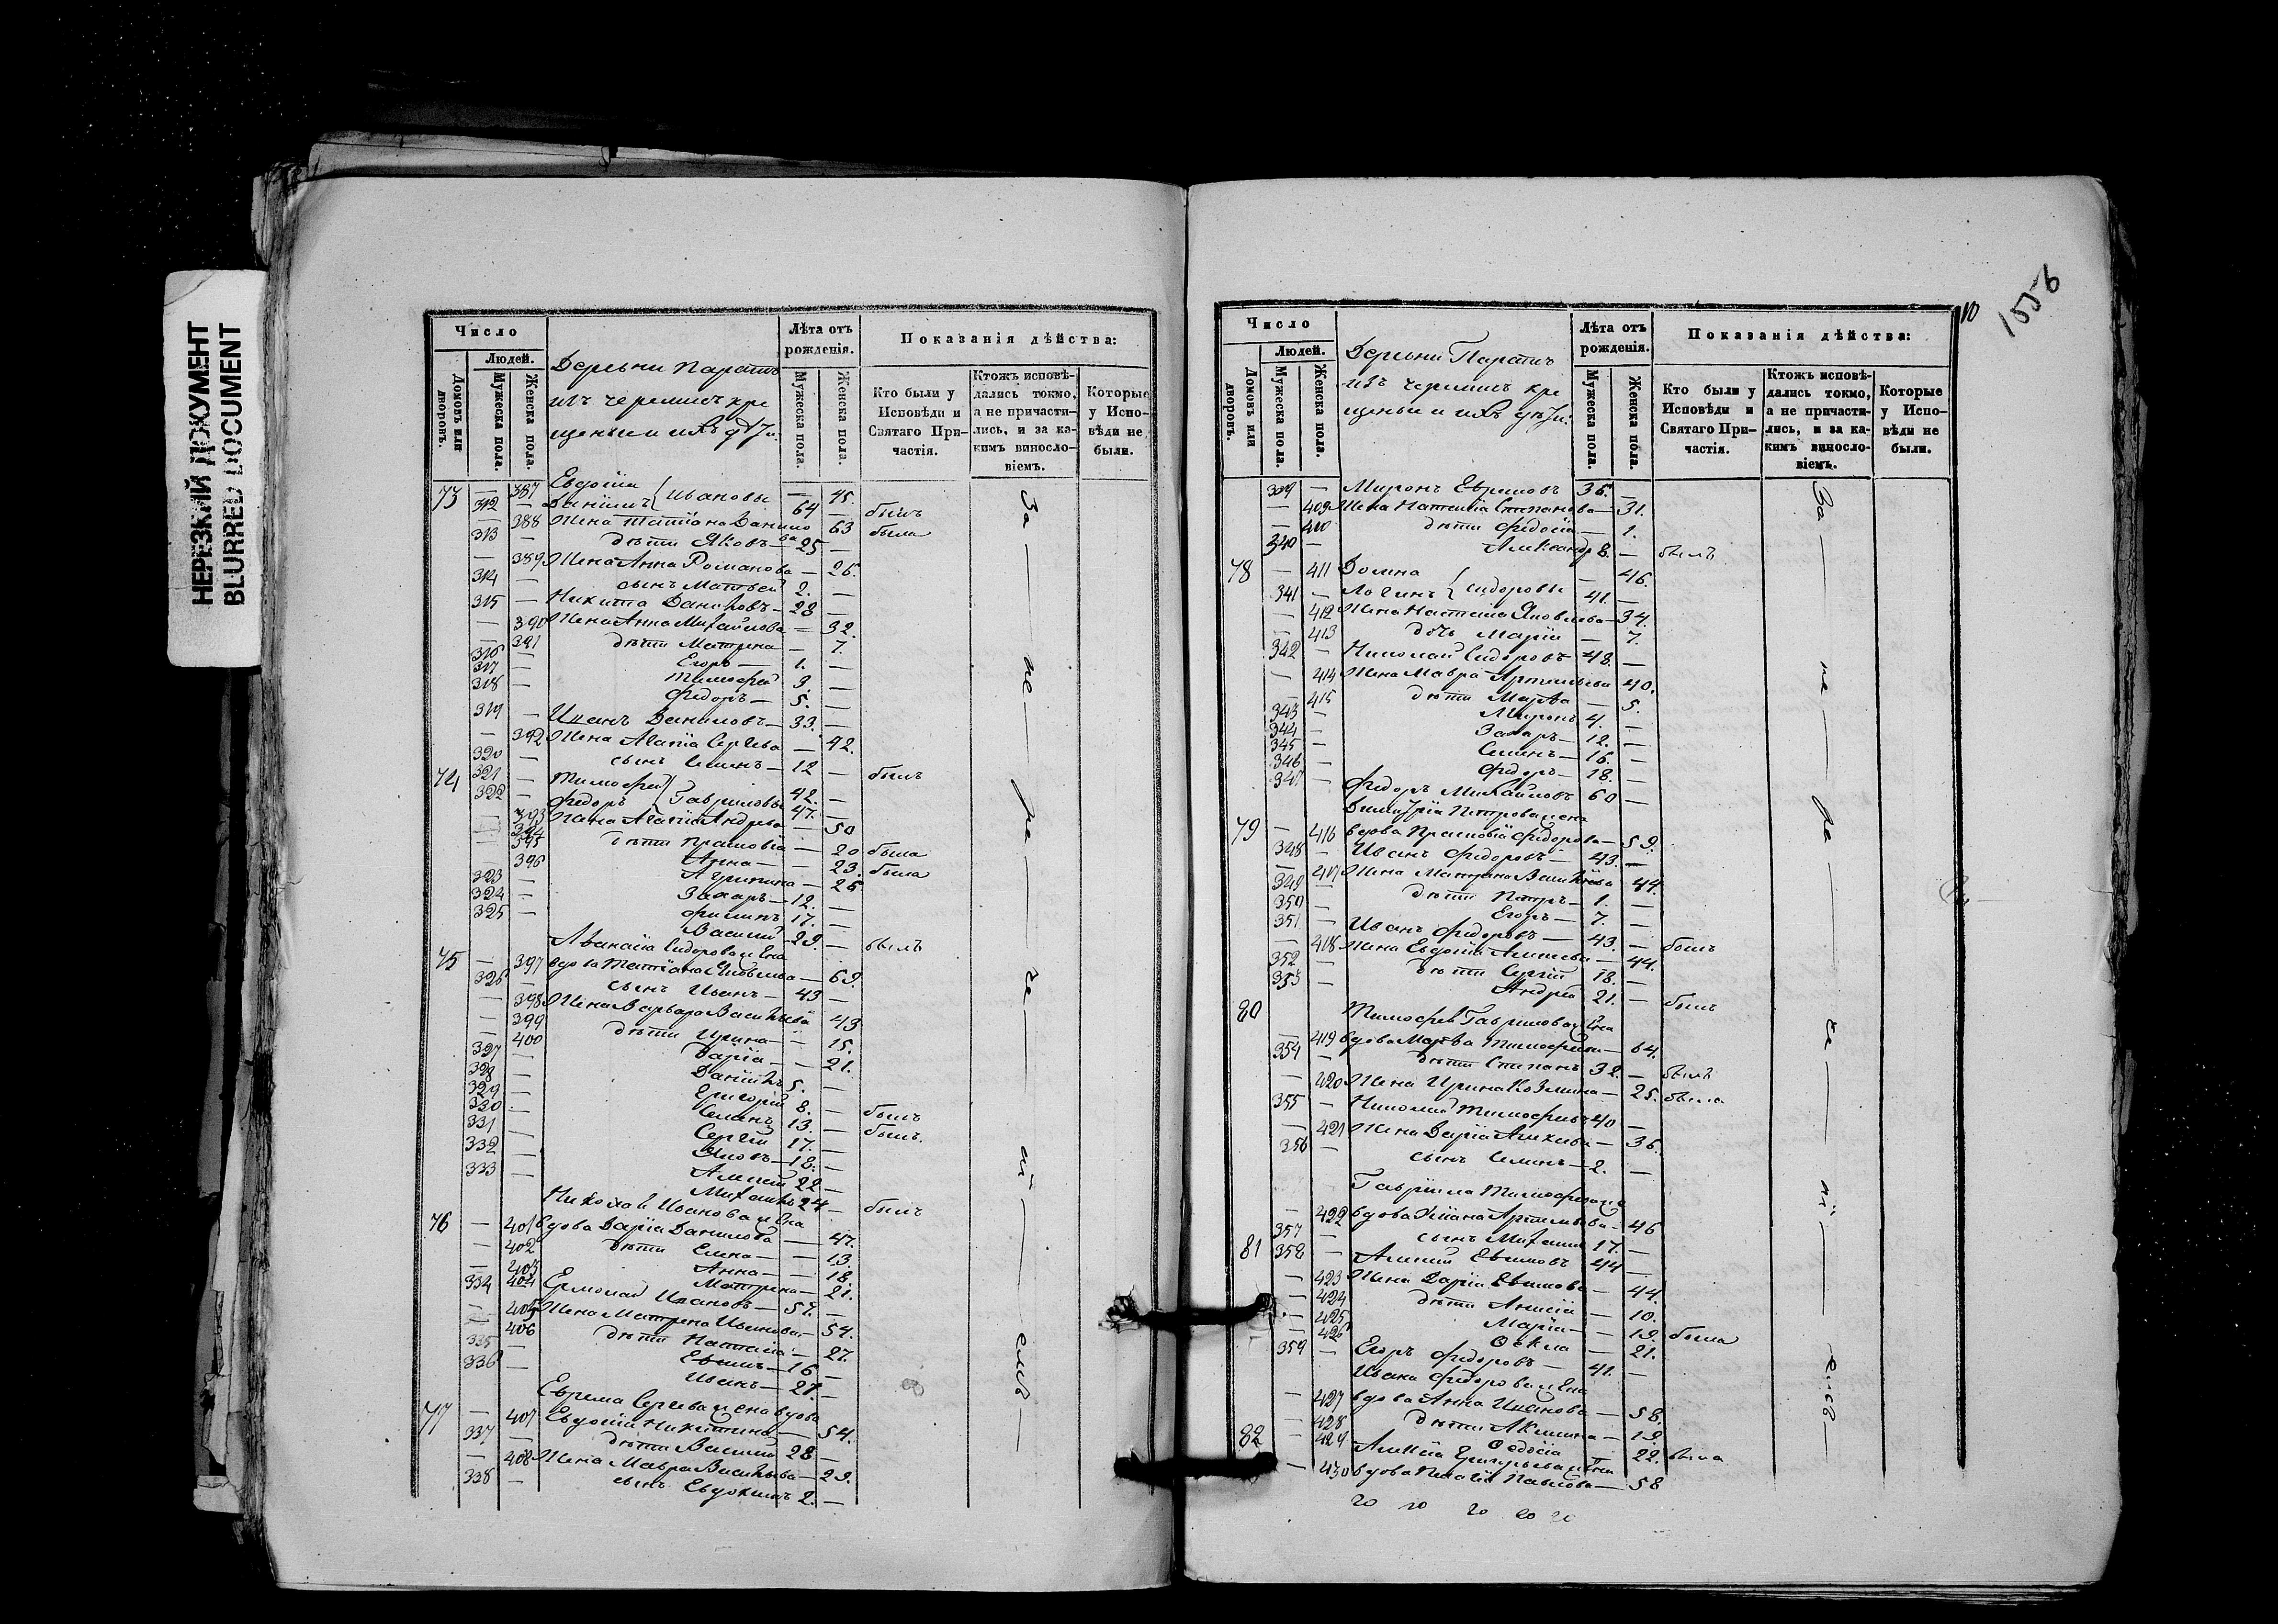 НЕРЕЗКИЙ ДОКУМЕНТ
BLURRED DOCUMENT
Число
Людей.
Домовъ или дворовъ.
Мужеска пола.
Женска пола.
Деревни Паратъ
изъ черемисъ кре
щеныи и ихъ дѣти.
Лѣта отъ рожденія.
Мужеска пола.
Женска пола.
Показанія дѣйства:
Кто были у Исповѣди и Святаго При-частія.
Ктожъ исповѣ-дались токмо, а не причасти-лись, и за ка-кимъ винослo-віемъ.
Которые у Испо-вѣди не были.
73 — 387 Евдокія — 45.
312 — Даніилъ } Ивановы 64 — былъ
— 388 Жена Татіана Данило
ва 63 была
313 — дѣти Яковъ — 25 —
— 389 Жена Анна Романова — 26.
314 — сынъ Матвей 2. —
315 — Никита Даниловъ — 28 —
— 390 Жена Анна Михайлова — 32.
— 391 дѣти Матрена — 7.
316 — Егоръ — 1. —
317 — Тимофей 3. —
318 — Федоръ — 5. —
319 — Иванъ Даниловъ — 33. —
— 392 Жена Агапія Сергѣева — 42.
320 — сынъ Семенъ — 12 — былъ
74 321 — Тимофей 42. —
322 — Федоръ } Гавриловы 47. —
— 393 Жена Агапія Андреева — 50
— 394 дѣти Прасковія — 20 была
— 395 Анна — — 23. была
— 396 Агрипина — 25
323 — Захаръ — 12. —
324 — Филипъ 17. —
325 — Василий — 29. — былъ
Афанасія Сидорова жена
75 — 397 вдова Татіана Яковлева — 69.
326 — сынъ Иванъ — 43 —
— 398 Жена Варвара Васильева 43
— 399 дѣти Ирина — — 15.
— 400 Дарія — — 21.
327 — Даніилъ 5. —
328 — Григорій 8. — былъ
329 — Семенъ 13. — былъ.
330 — Сергѣй 17. —
331 — Яковъ — 18. —
332 — Алексѣй 22 —
333 — Михаилъ 24 — былъ
Николай Иванова жена
76 — 401 вдова Дарія Данилова — 47.
— 402 дѣти Елена — — 13.
— 403 Анна — — 18.
— 404 Матрена — 21.
334 Ермолай Ивановъ — 57. —
— 405 Жена Матрена Иванова — 54.
— 406 дѣти Наталія — 27.
335 — Евдокимъ — 16 —
336 — Иванъ — 27. —
Ефрема Сергѣева жена вдова
77 — 407 Евдокія Никитина — 54.
337 — дѣти Василий 28 —
— 408 Жена Мавра Васильева — 29.
338 — сынъ Евдокимъ 2. —
За — не — ра — че — ні — емъ —
10
1556
Число
Людей.
Домовъ или дворовъ.
Мужеска пола.
Женска пола.
Деревни Паратъ
изъ черемисъ кре
щеныи и ихъ дѣти.
Лѣта отъ рожденія.
Мужеска пола.
Женска пола.
Показанія дѣйства:
Кто были у Исповѣди и Святаго При-частія.
Ктожъ исповѣ-дались токмо, а не причасти-лись, и за ка-кимъ винослo-віемъ.
Которые у Испо-вѣди не были.
339 — Миронъ Ефремовъ 36. —
— 409 Жена Наталія Степанова — 31.
— 410 дѣти Федосія — 1.
340 — Александръ 8. — былъ
78 — 411 Домна — 46.
341 — Логинъ } Сидоровы 41. —
— 412 Жена Наталія Яковлева — 34.
— 413 дочь Марія — 7.
342 — Николай Сидоровъ 48. —
— 414 Жена Мавра Артемьева 40.
— 415 дѣти Марѳа — 5.
343 — Миронъ 4. —
344 — Захаръ — 12. —
345 — Семенъ — 16. —
346 — Федоръ — 18. —
347 — Федоръ Михайловъ 60 —
Димитрія Петрова жена
79 — 416 вдова Прасковія Федорова — 59.
348 — Иванъ Федоровъ — 43 —
— 417 Жена Матрена Васильева 44.
349 — дѣти Петръ — 1. —
350 — Егоръ — 7. —
351 — Иванъ Федоровъ — 43. — былъ
— 418 Жена Евдокія Алексѣева — 44.
352 — дѣти Сергѣй 18. —
353 — Андрей 21. — былъ
80 Тимофея Гаврилова жена
— 419 вдова Марѳа Тимофеева — 64.
354 — дѣти Степанъ 32. — былъ
— 420 Жена Ирина Козмина — 25. была
355 — Николай Тимофеевъ 40 —
— 421 Жена Дарія Алексѣева — 36.
356 — сынъ Семенъ — 2. —
Гавріила Тимофеева же
— 422 вдова Уліана Артемьева — 46
357 — сынъ Михаилъ 17. —
81 358 — Алексѣй Евдокимовъ 44 —
— 423 Жена Дарія Евдокимова — 44.
— 424 дѣти Анисія — 10.
— 425 Марія — — 19. была
— 426 Ѳекла — 21.
359 — Егоръ Федоровъ — 41. —
Ивана Федорова жена
— 427 вдова Анна Иванова — 58.
— 428 дѣти Акилина — 19.
— 429 Ѳеодосія — 22. была
82 Алексѣя Григорьева жена
— 430 вдова Пелагія Павлова — 58
За — не — ра — че — ні — емъ —